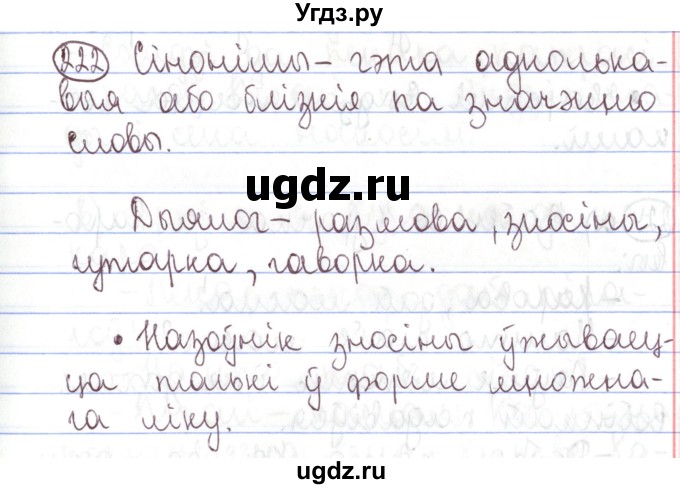 Угдз.ру
222 Сінонімы – гэта аднолька-
выя або блізкія па значэнню
словы.
ugdz.ru
Дыялог – размова, зносіны,
гутарка, гаворка.
• Назоўнік зносіны ўжываец-
ца толькі ў форме множна-
га ліку.
ugdz.ru